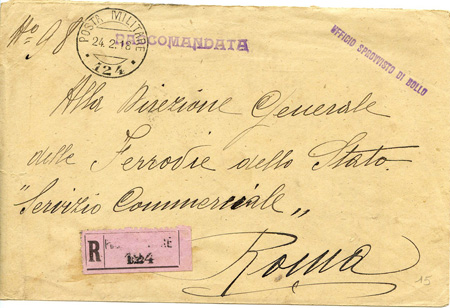 Nº 98
POSTA MILITARE
24.2.18
124
RACCOMANDATA
UFFICIO SPROVVISTO DI BOLLO
Alla Direzione Generale
delle Ferrovie dello Stato.
"Servizio Commerciale„
R
124
Roma
15